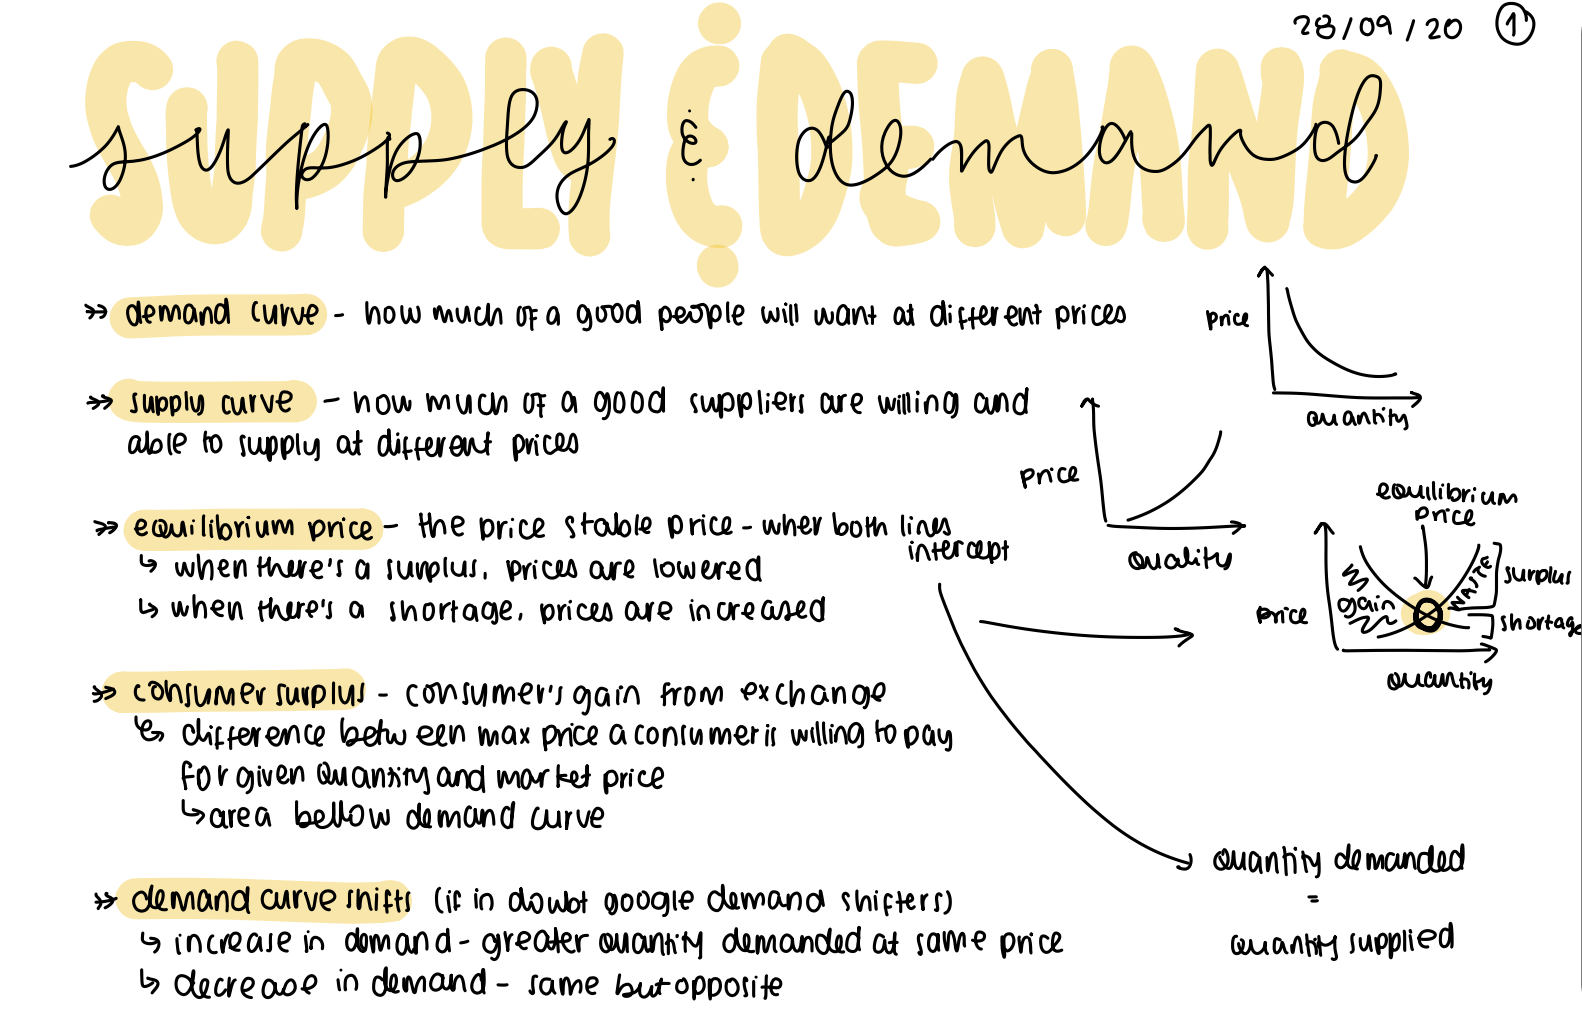 28/09/20 1
SUPPLY & DEMAND
supply & demand
demand curve - how much of a good people will want at different prices
price
quantity
supply curve - how much of a good suppliers are willing and
able to supply at different prices
price
quality
equilibrium price - the price stable price - wher both lines
intercept
when there's a surplus, prices are lowered
when there's a shortage, prices are increased
equilibrium
price
price
gain
WASTE
surplus
shortage
quantity
consumer surplus - consumer's gain from exchange
difference between max price a consumer is willing to pay
for given quantity and market price
area bellow demand curve
quantity demanded
=
quantity supplied
demand curve shifts (if in doubt google demand shifters)
increase in demand - greater quantity demanded at same price
decrease in demand - same but opposite